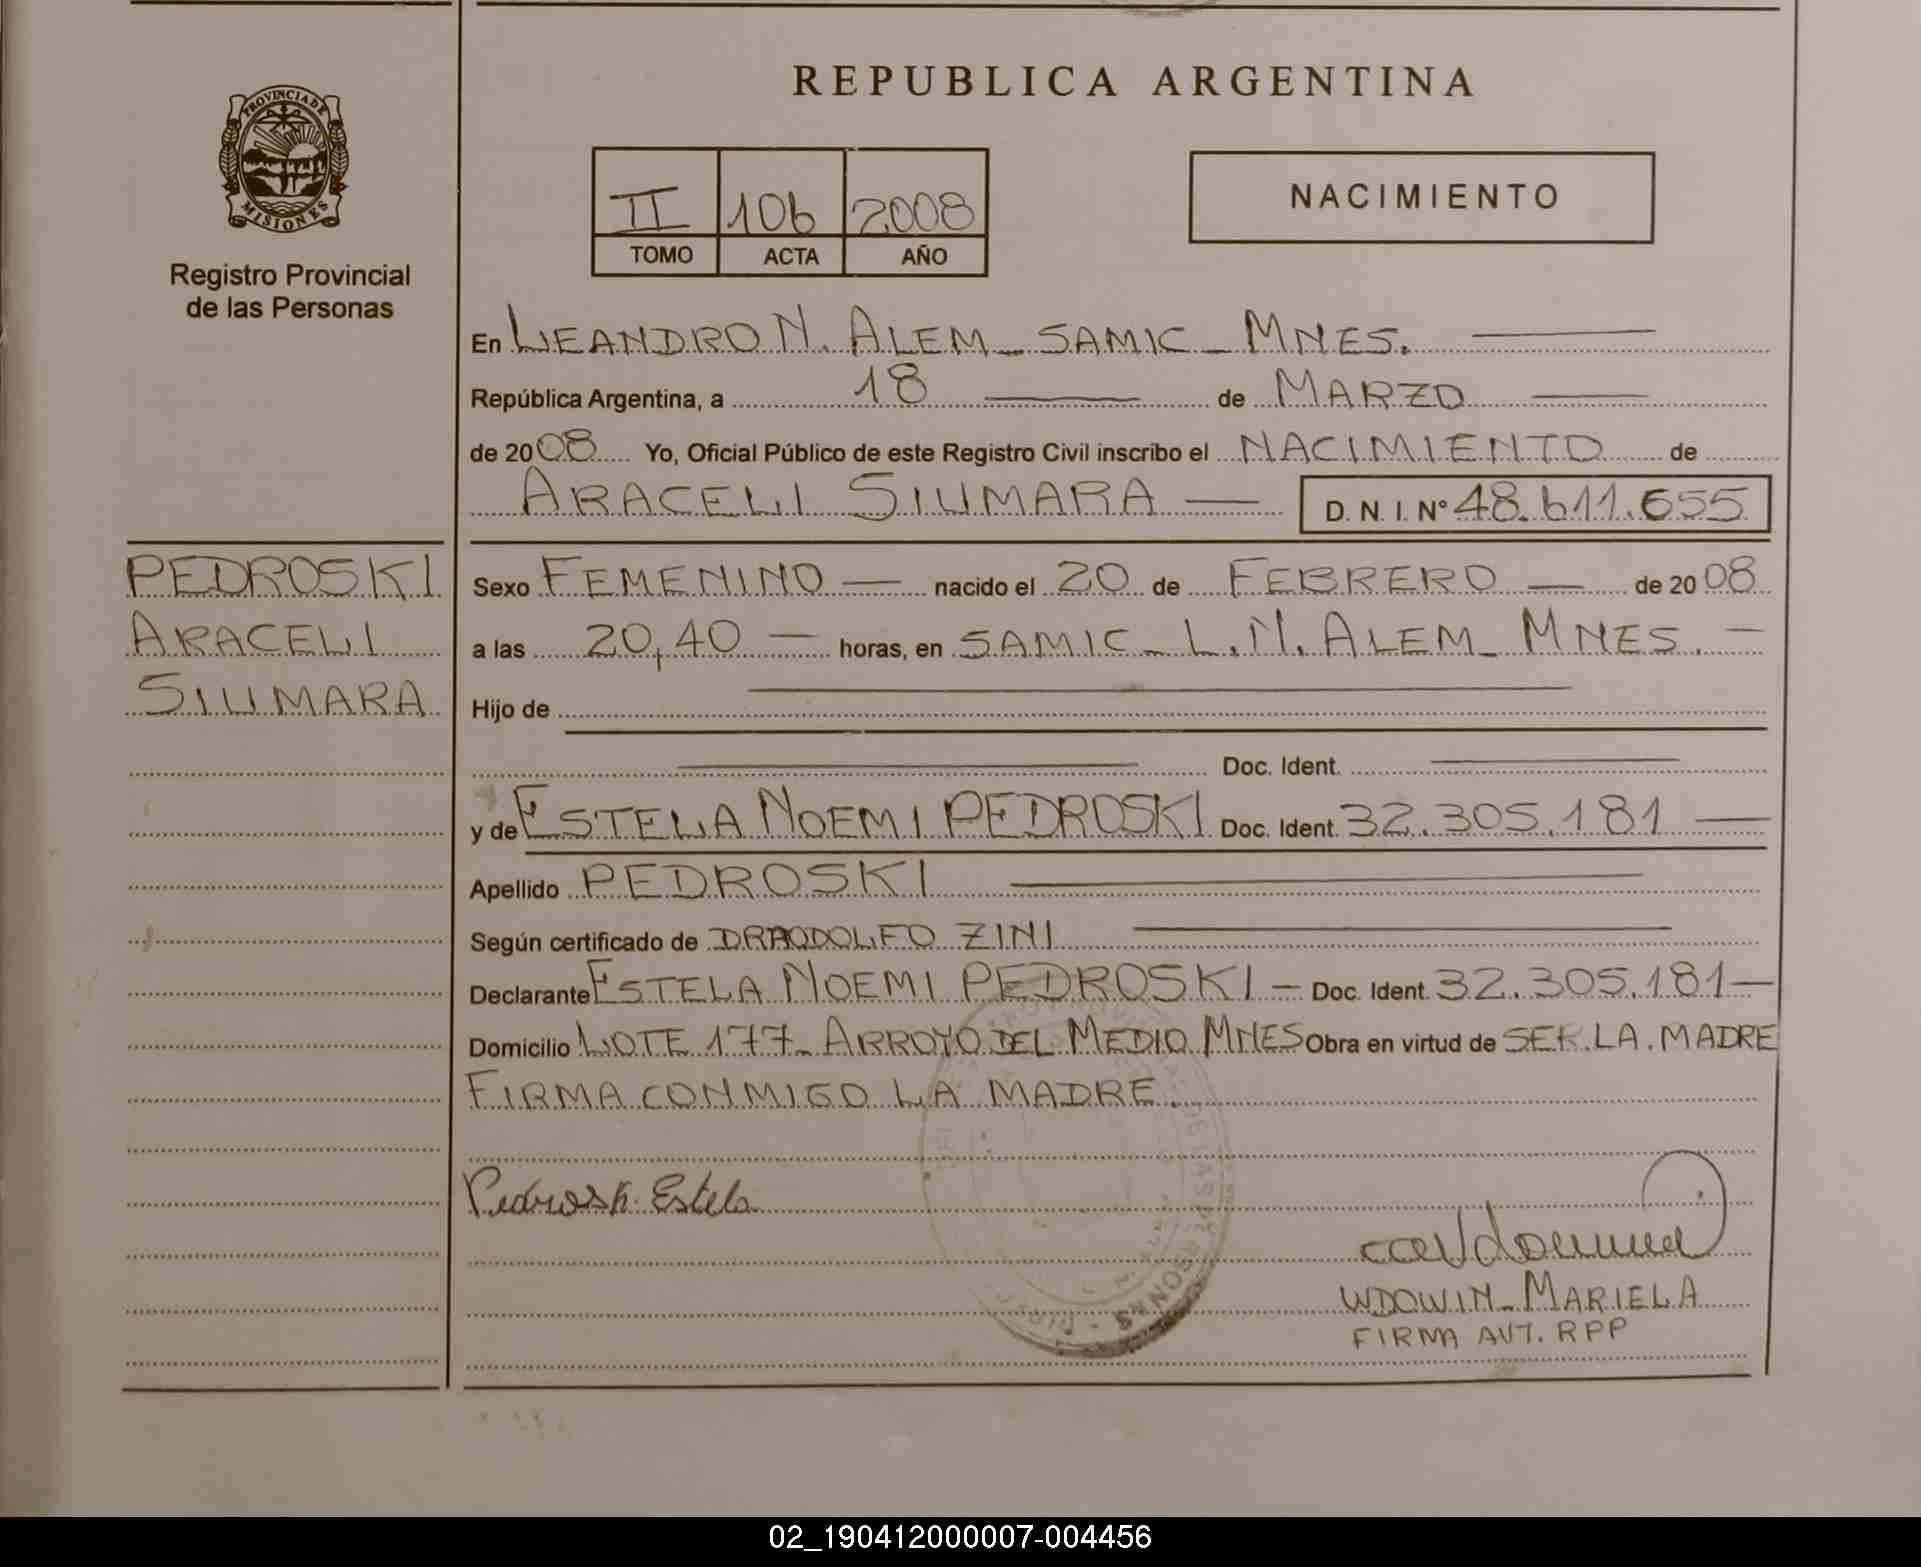 REPUBLICA ARGENTINA
PROVINCIA DE
MISIONES
Registro Provincial
de las Personas
NACIMIENTO
II 106 2008
TOMO ACTA AÑO
En LEANDRO N. ALEM - SAMIC - MNES.
República Argentina, a 18 de MARZO
de 2008 Yo, Oficial Público de este Registro Civil inscribo el NACIMIENTO de
ARACELI SIUMARA D.N.I. Nº 48.611.655
PEDROSKI
ARACELI
SIUMARA
Sexo FEMENINO nacido el 20 de FEBRERO de 2008
a las 20,40 horas, en SAMIC - L.N. ALEM - MNES.
Hijo de
Doc. Ident.
y de ESTELA NOEMI PEDROSKI Doc. Ident. 32.305.181
Apellido PEDROSKI
Según certificado de ZINI
Declarante ESTELA NOEMI PEDROSKI - Doc. Ident. 32.305.181
Domicilio LOTE 177 - ARROYO DEL MEDIO MNES Obra en virtud de SER LA MADRE
FIRMA CONMIGO LA MADRE.
Pedroski Estela
WDOWIN - MARIELA
FIRMA AUT. RPP
02_190412000007-004456